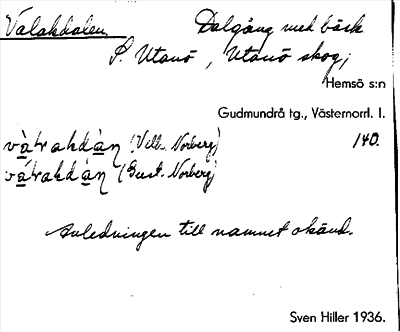 Valakdalen Dalgång med bäck
S. Utanö, Utanö skog;
Hemsö s:n
Gudmundrå tg., Västernorrl. l.
(Vilh. Norberg) 140.
(Gust. Norberg)
Anledningen till namnet okänd.
Sven Hiller 1936.